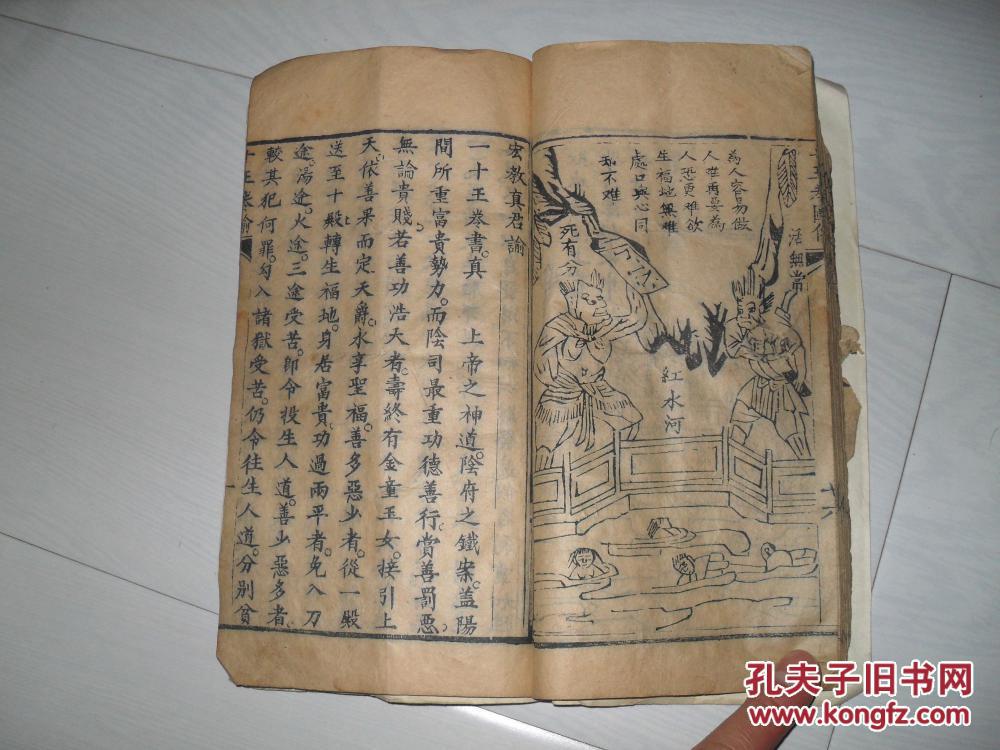 活無常
為人容易做
人生再要為
人恐更难欲
生福地無难
處口與心同
知不难
死有分
紅水河
宏教真君諭
一十王卷書。真　上帝之神道。陰府之鐵案。盖陽
間所重富貴勢力。而陰司最重功德善行。賞善罰惡。
無論貴賤。若善功浩大者。壽終有金童玉女。接引上
天。依善果而定天爵。永享聖福。善多惡少者。從一殿
送至十殿轉生福地。身居富貴。功過兩平者。免入刀
途。湯途。火途。三途受苦。即令投生人道。善少惡多者。
較其犯何罪。勾入諸獄受苦。仍令往生人道。分別貧
孔夫子旧书网
www.kongfz.com